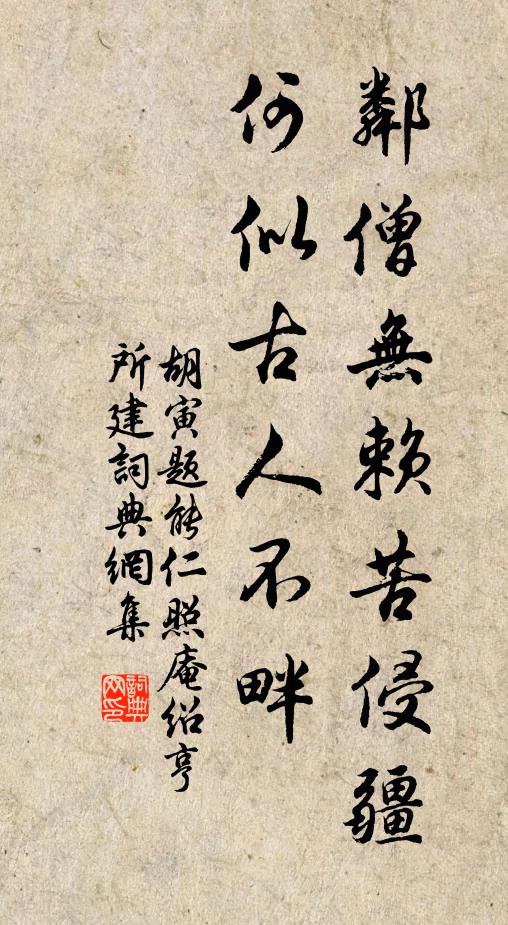 鄰僧無賴苦侵疆
何似古人不畔
胡寅题能仁照庵绍亨
所建詞典網集
詞典
网印